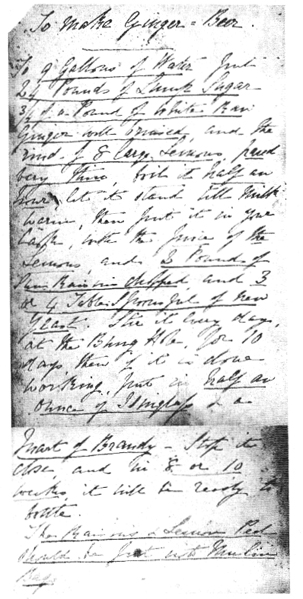 To make Ginger=Beer
To 9 Gallons of Water Put
24 Pounds of Lump Sugar
3/4 of a Pound of White Raw
Ginger well bruised, and the
rind of 8 large Lemons, pared
very thin, boil it half an
hour let it stand till milk
warm, then put it in your
Cask, with the Juice of the
Lemons, and 3 Pounds of
Raisins chopped and 3
or 4 Tablespoonsful of new
Yeast. Stir it every day,
at the Bung Hole, for 10
days, then if it is done
working, put in half an
ounce of Isinglass & a
Quart of Brandy – Stop it
close and in 8 or 10
weeks, it will be ready to
bottle
The Raisins & Lemon Peel
should be put into Muslin
Bags